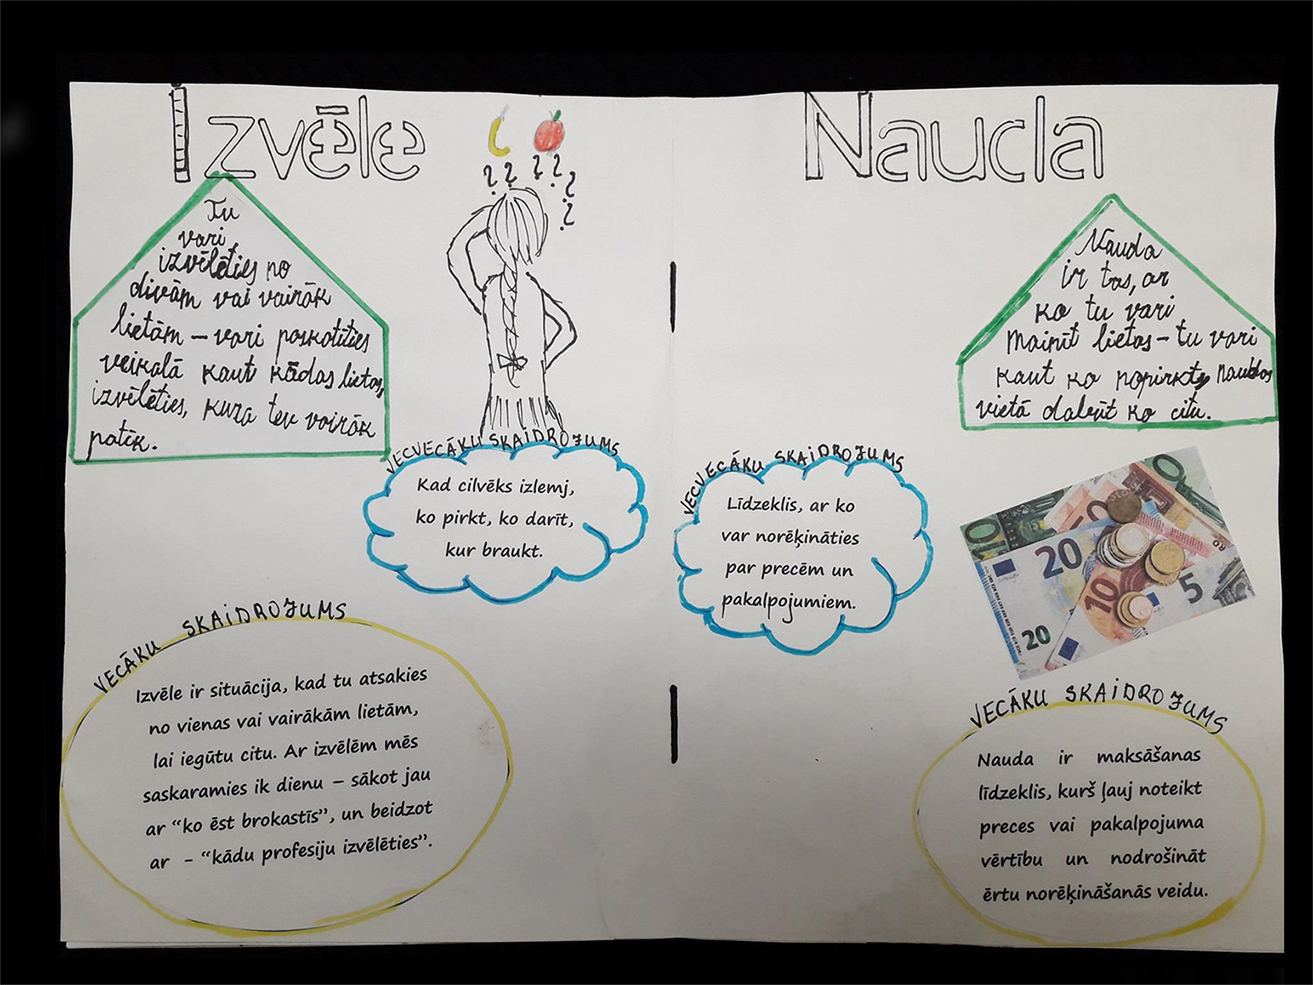 Izvēle
Tu
vari
izvēlēties no
divām vai vairāk
lietām – vari paskatīties
veikalā kaut kādas lietas,
izvēlēties, kura tev vairāk
patīk.
VECVECĀKU SKAIDROJUMS
Kad cilvēks izlemj,
ko pirkt, ko darīt,
kur braukt.
VECĀKU SKAIDROJUMS
Izvēle ir situācija, kad tu atsakies
no vienas vai vairākām lietām,
lai iegūtu citu. Ar izvēlēm mēs
saskaramies ik dienu – sākot jau
ar “ko ēst brokastīs”, un beidzot
ar - “kādu profesiju izvēlēties”.
Nauda
Nauda
ir tas, ar
ko tu vari
mainīt lietas – tu vari
kaut ko nopirkt, naudas
vietā dabūt ko citu.
VECVECĀKU SKAIDROJUMS
Līdzeklis, ar ko
var norēķināties
par precēm un
pakalpojumiem.
10
20
10
5
20
VECĀKU SKAIDROJUMS
Nauda ir maksāšanas
līdzeklis, kurš ļauj noteikt
preces vai pakalpojuma
vērtību un nodrošināt
ērtu norēķināšanās veidu.